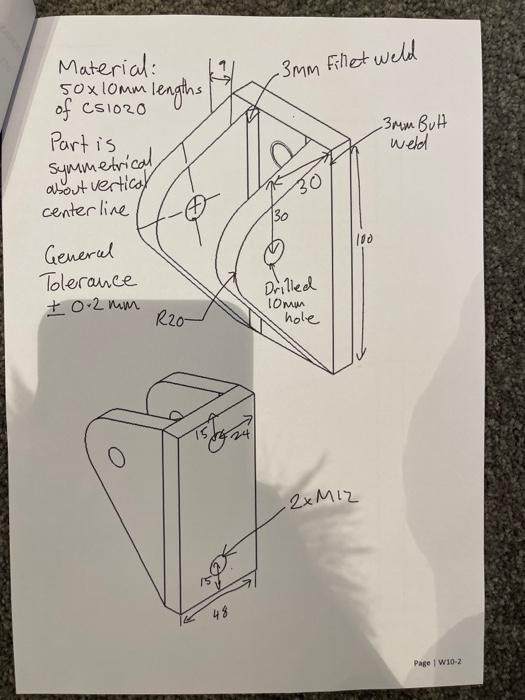 Material:
50x10mm lengths
of CS1020
Part is
symmetrical
about vertical
center line
General
Tolerance
± 0.2mm
9
3mm Fillet weld
3mm Butt
weld
30
30
100
Drilled
10mm
hole
R20
15
24
2xM12
15
48
Page | W10-2